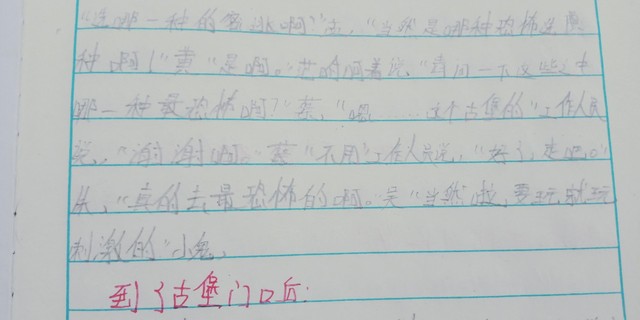 "选哪一种的密逃啊"古,"当然是哪种恐怖选哪
种啊!"黄"是啊。"范附同着说,"请问一下这些之中
哪一种最恐怖啊?"蔡,"嗯……这个古堡的"工作人员
说,"谢谢啊。"蔡"不用"工作人员说,"好了,走吧。"
"真的去最恐怖的啊。吴"当然啦,要玩就玩
刺激的"小鬼,
到了古堡门口后: